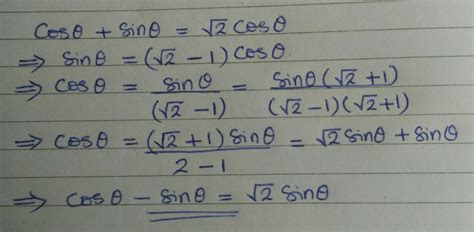 cosθ + sinθ = √2 cosθ
⇒ sinθ = (√2 - 1) cosθ
⇒ cosθ = sinθ / (√2 - 1) = sinθ (√2 + 1) / (√2 - 1)(√2 + 1)
⇒ cosθ = (√2 + 1) sinθ / 2 - 1 = √2 sinθ + sinθ
⇒ cosθ - sinθ = √2 sinθ